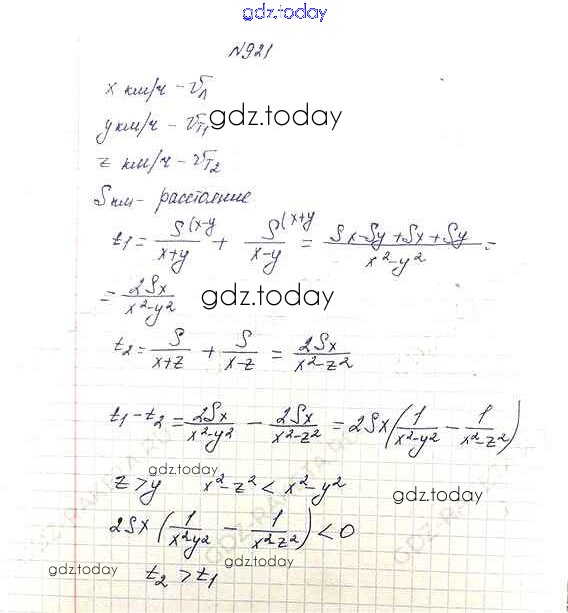 gdz.today
N 921
x км/ч - vл
gdz.today
y км/ч - vт1
z км/ч - vт2
S км - расстояние
t1 = S(x-y / x+y + S(x+y / x-y = Sx-Sy+Sx+Sy / x²-y² =
= 2Sx / x²-y²
gdz.today
t2 = S / x+z + S / x-z = 2Sx / x²-z²
t1-t2 = 2Sx / x²-y² - 2Sx / x²-z² = 2Sx(1 / x²-y² - 1 / x²-z²)
gdz.today
z>y x²-z² < x²-y²
gdz.today
2Sx(1 / x²y² - 1 / x²z²) < 0
gdz.today
t2 > t1
gdz.today